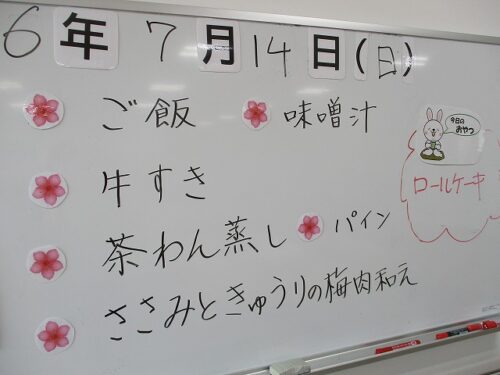 6年7月14日(日)
ご飯 味噌汁
今日の
おやつ
ロールケーキ
牛すき
茶わん蒸し パイン
ささみときゅうりの梅肉和え